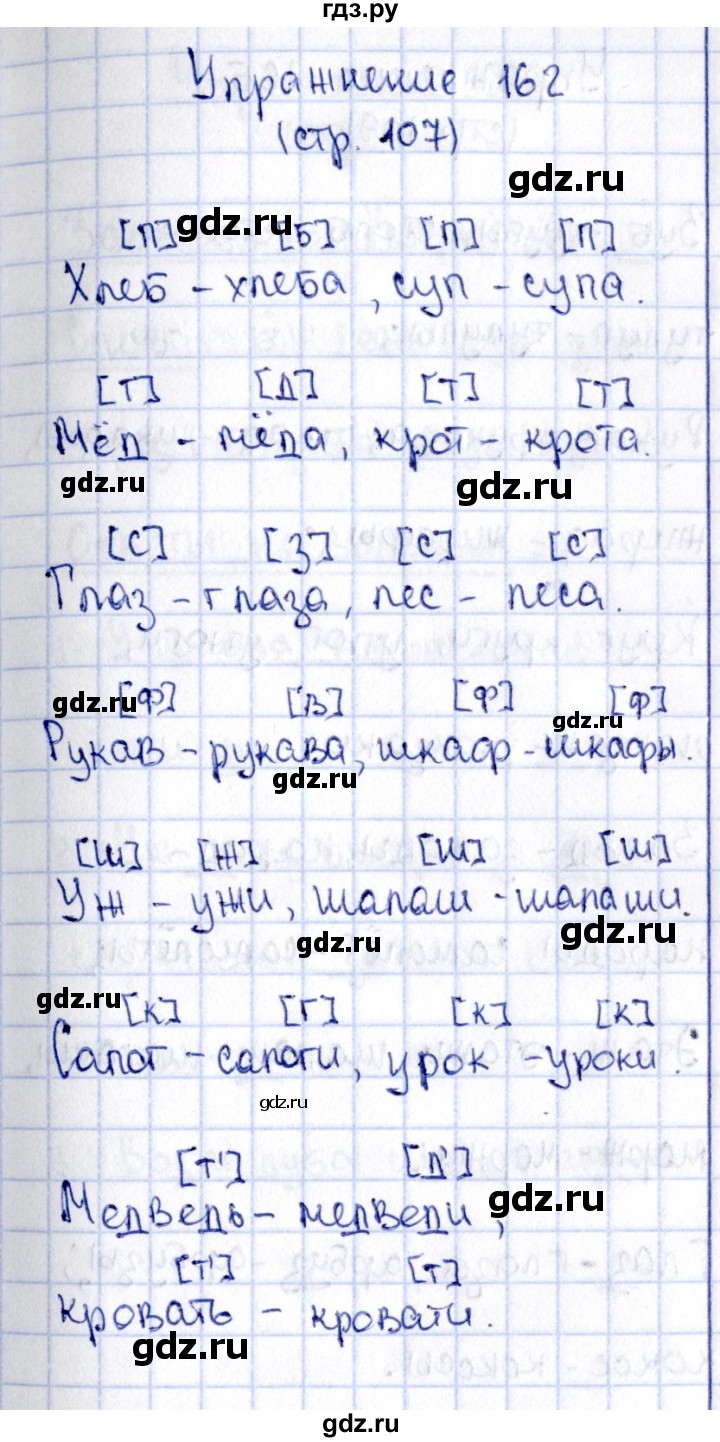 гдз.ру
Упражнение 162
(стр. 107)
gdz.ru
[п] gdz.ru [б] [п] [п]
Хлеб - хлеба, суп - супа.
[т] [д] [т] [т]
Мёд - мёда, крот - крота.
gdz.ru gdz.ru
[с] [з] [с] [с]
Глаз - глаза, пес - песа.
gdz.ru [ф] [в] [ф] [ф]
gdz.ru
Рукав - рукава, шкаф - шкафы.
gdz.ru
[ш] [ж] [ш] [ш]
Уж - ужи, шалаш - шалаши.
gdz.ru gdz.ru
gdz.ru [к] [г] [к] [к]
Сапог - сапоги, урок - уроки.
gdz.ru
[т'] [д']
gdz.ru
Медведь - медведи,
[т'] [т]
кровать - кровати.
gdz.ru gdz.ru
gdz.ru